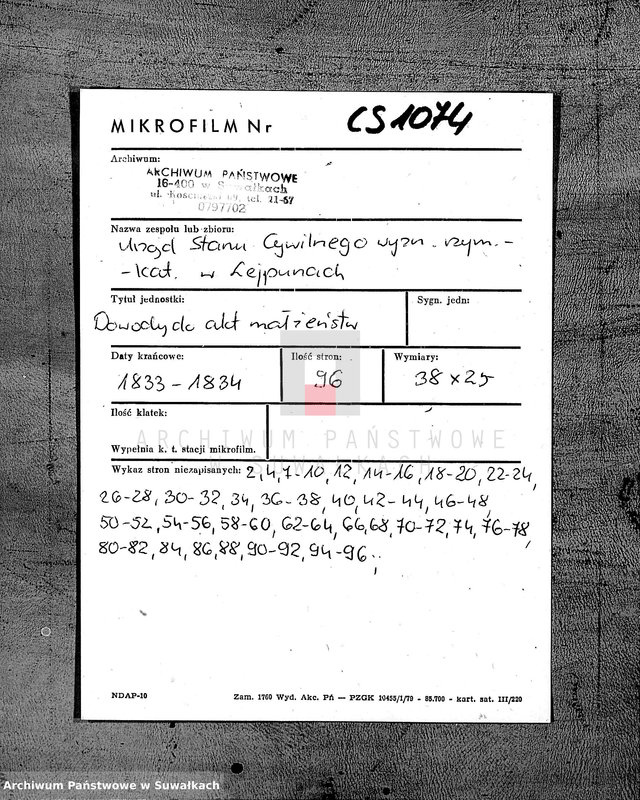 MIKROFILM Nr CS1074
Archiwum:
ARCHIWUM PAŃSTWOWE
16-400 w Suwałkach
ul. Kościuszki 69, tel. 21-67
0797702
Nazwa zespołu lub zbioru:
Urząd Stanu Cywilnego wyzn. rzym.-
-kat. w Lejpunach
Tytuł jednostki:
Sygn. jedn:
Dowody do akt małżeństw
Daty krańcowe:
Ilość stron:
Wymiary:
1833-1834
96
38x25
Ilość klatek:
Wypełnia k. t. stacji mikrofilm.
ARCHIWUM PAŃSTWOWE
W SUWAŁKACH
Wykaz stron niezapisanych: 2,4,7-10,12,14-16,18-20,22-24,
26-28,30-32,34,36-38,40,42-44,46-48,
50-52,54-56,58-60,62-64,66,68,70-72,74,76-78,
80-82,84,86,88,90-92,94-96.;
NDAP-10
Zam. 1760 Wyd. Akc. Pń — PZGK 10455/I/79 - 85.700 - kart. sat. III/220
Archiwum Państwowe w Suwałkach